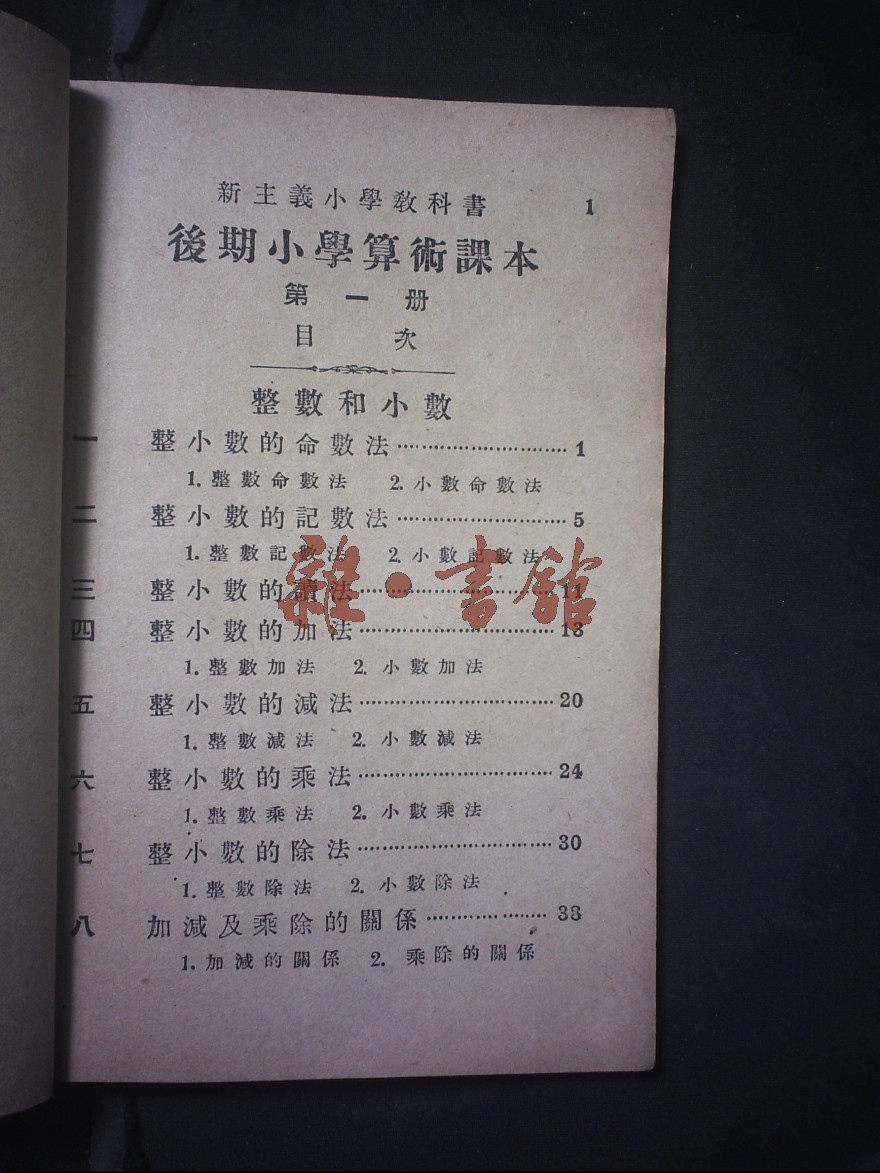 新主義小學教科書 1
後期小學算術課本
第一册
目次
整數和小數
一 整小數的命數法……………………1
1. 整數命數法 2. 小數命數法
二 整小數的記數法……………………5
1. 整數記數法 2. 小數記數法
三 整小數的讀法……………………11
四 整小數的加法……………………13
1. 整數加法 2. 小數加法
五 整小數的減法……………………20
1. 整數減法 2. 小數減法
六 整小數的乘法……………………24
1. 整數乘法 2. 小數乘法
七 整小數的除法……………………30
1. 整數除法 2. 小數除法
八 加減及乘除的關係………………33
1. 加減的關係 2. 乘除的關係
雜·書館